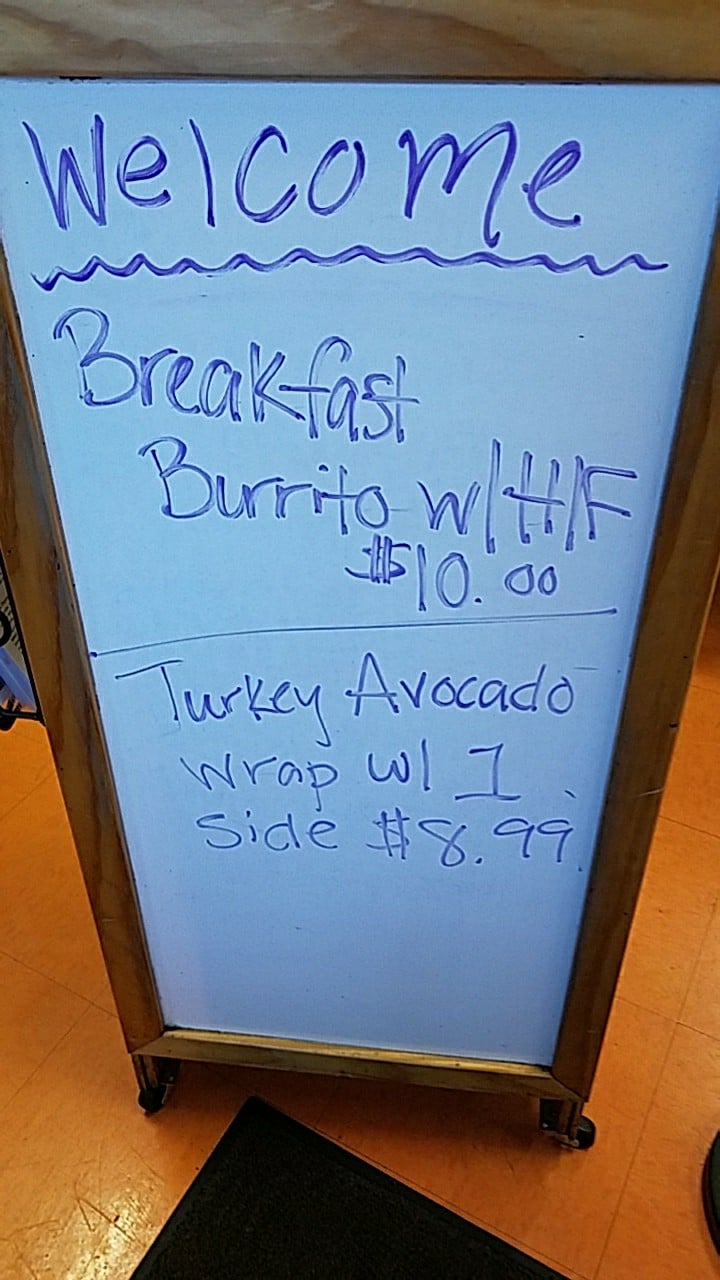 Welcome
Breakfast
Burrito w/H/F
$10.00
Turkey Avocado
Wrap w/ 1
Side $8.99